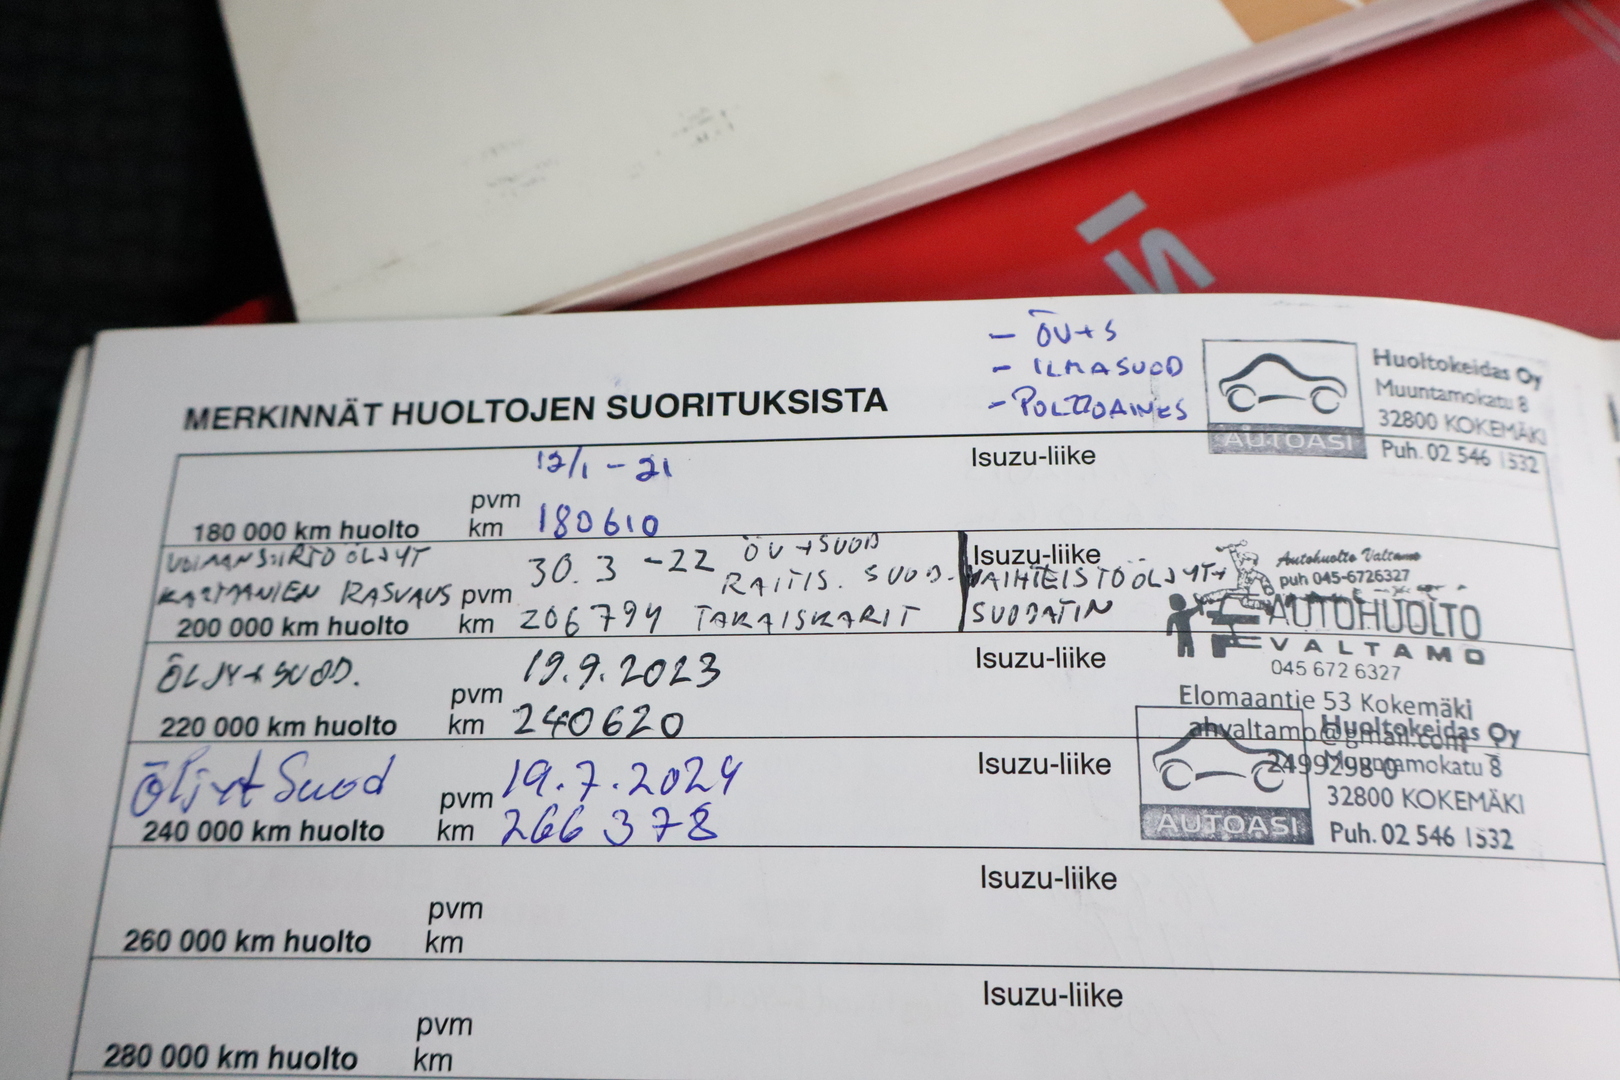 - ÖV+S
- ILMASUOD
- POLTTOAINES
Huoltokeidas Oy
Muuntamokatu 8
32800 KOKEMÄKI
Puh. 02 546 1532
AUTOASI
MERKINNÄT HUOLTOJEN SUORITUKSISTA
12/1 - 21
Isuzu-liike
pvm
180 000 km huolto km 180610
VOIMANSIIRTOÖLJYT
KARTAANIEN RASVAUS pvm 30.3 -22 ÖV+SUOD
RAITIS. SUOD.
200 000 km huolto km 206794 TAKAISKARIT
Isuzu-liike
VAIHTEISTOÖLJYT+
SUODATIN
Autohuolto Valtamo
puh 045-6726327
AUTOHUOLTO
VALTAMO
045 672 6327
Elomaantie 53 Kokemäki
ahvaltamo@gmail.com
2499298-0
ÖLJY+SUOD. 19.9.2023
Isuzu-liike
pvm
220 000 km huolto km 240620
Öljyt Suod pvm 19.7.2024
Isuzu-liike
240 000 km huolto km 266 378
Huoltokeidas Oy
Muuntamokatu 8
32800 KOKEMÄKI
Puh. 02 546 1532
AUTOASI
Isuzu-liike
pvm
260 000 km huolto km
Isuzu-liike
pvm
280 000 km huolto km